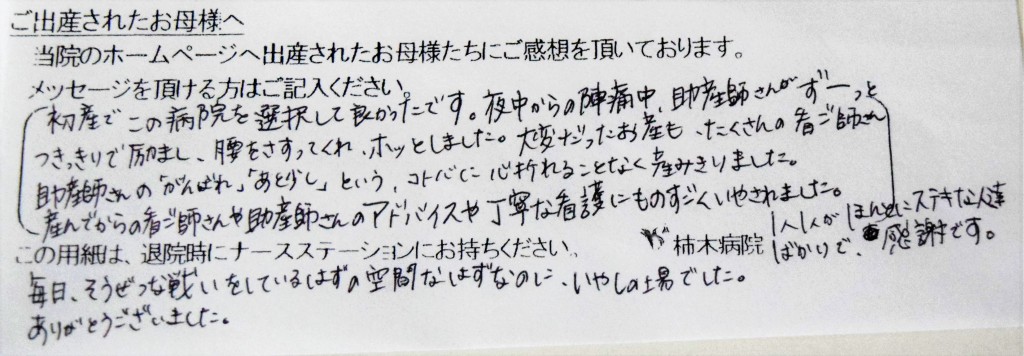 ご出産されたお母様へ
当院のホームページへ出産されたお母様たちにご感想を頂いております。
メッセージを頂ける方はご記入ください。
初産でこの病院を選択して良かったです。夜中からの陣痛中、助産師さんがずーっと
つきっきりで励まし、腰をさすってくれ、ホッとしました。大変だったお産も、たくさんの看ご師さん
助産師さんの「がんばれ」「あと少し」という、コトバに心折れることなく産みきりました。
産んでからの看ご師さんや助産師さんのアドバイスや丁寧な看護にものすごくいやされました。
1人1人がほんとにステキな人達
ばかりで、感謝です。
この用紙は、退院時にナースステーションにお持ちください。
柿木病院
毎日、そうぜつな戦いをしているはずの空間なはずなのに、いやしの場でした。
ありがとうございました。